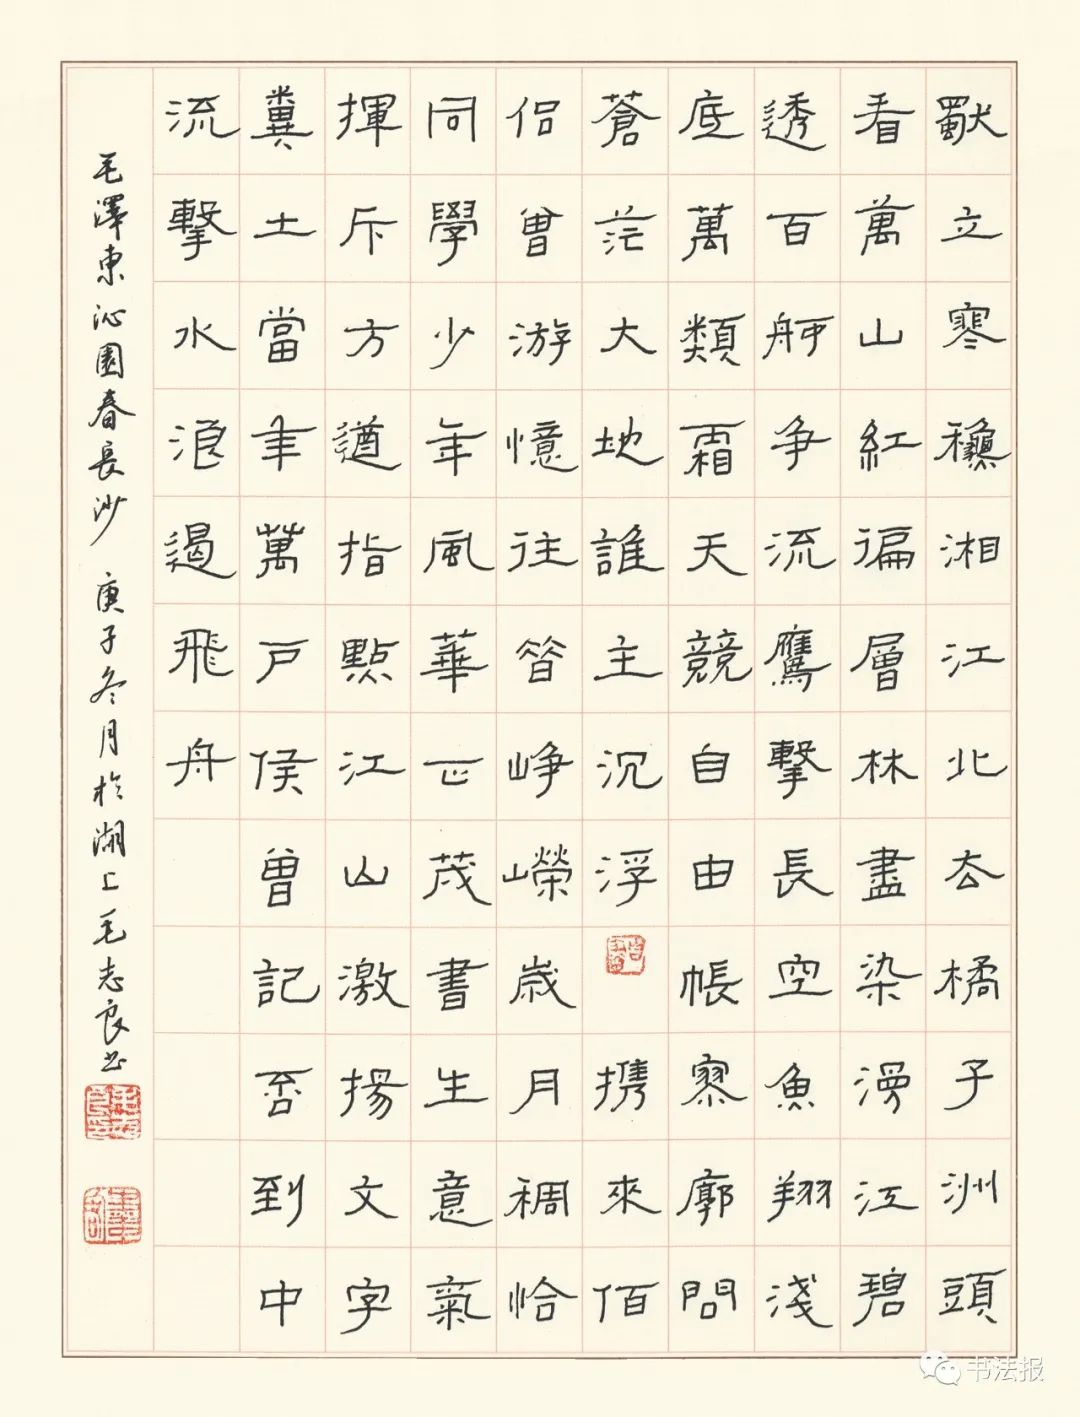 獨立寒穐湘江北去橘子洲頭
看萬山紅徧層林盡染漫江碧
透百舸争流鷹擊長空魚翔淺
底萬類霜天競自由悵寥廓問
蒼茫大地誰主沉浮携來佰
侣曾游憶往昔崢嶸歲月稠恰
同學少年風華正茂書生意氣
揮斥方遒指點江山激揚文字
糞土當年萬户侯曾記否到中
流擊水浪遏飛舟
毛澤東沁園春長沙 庚子冬月於湖上毛志良书
书法报